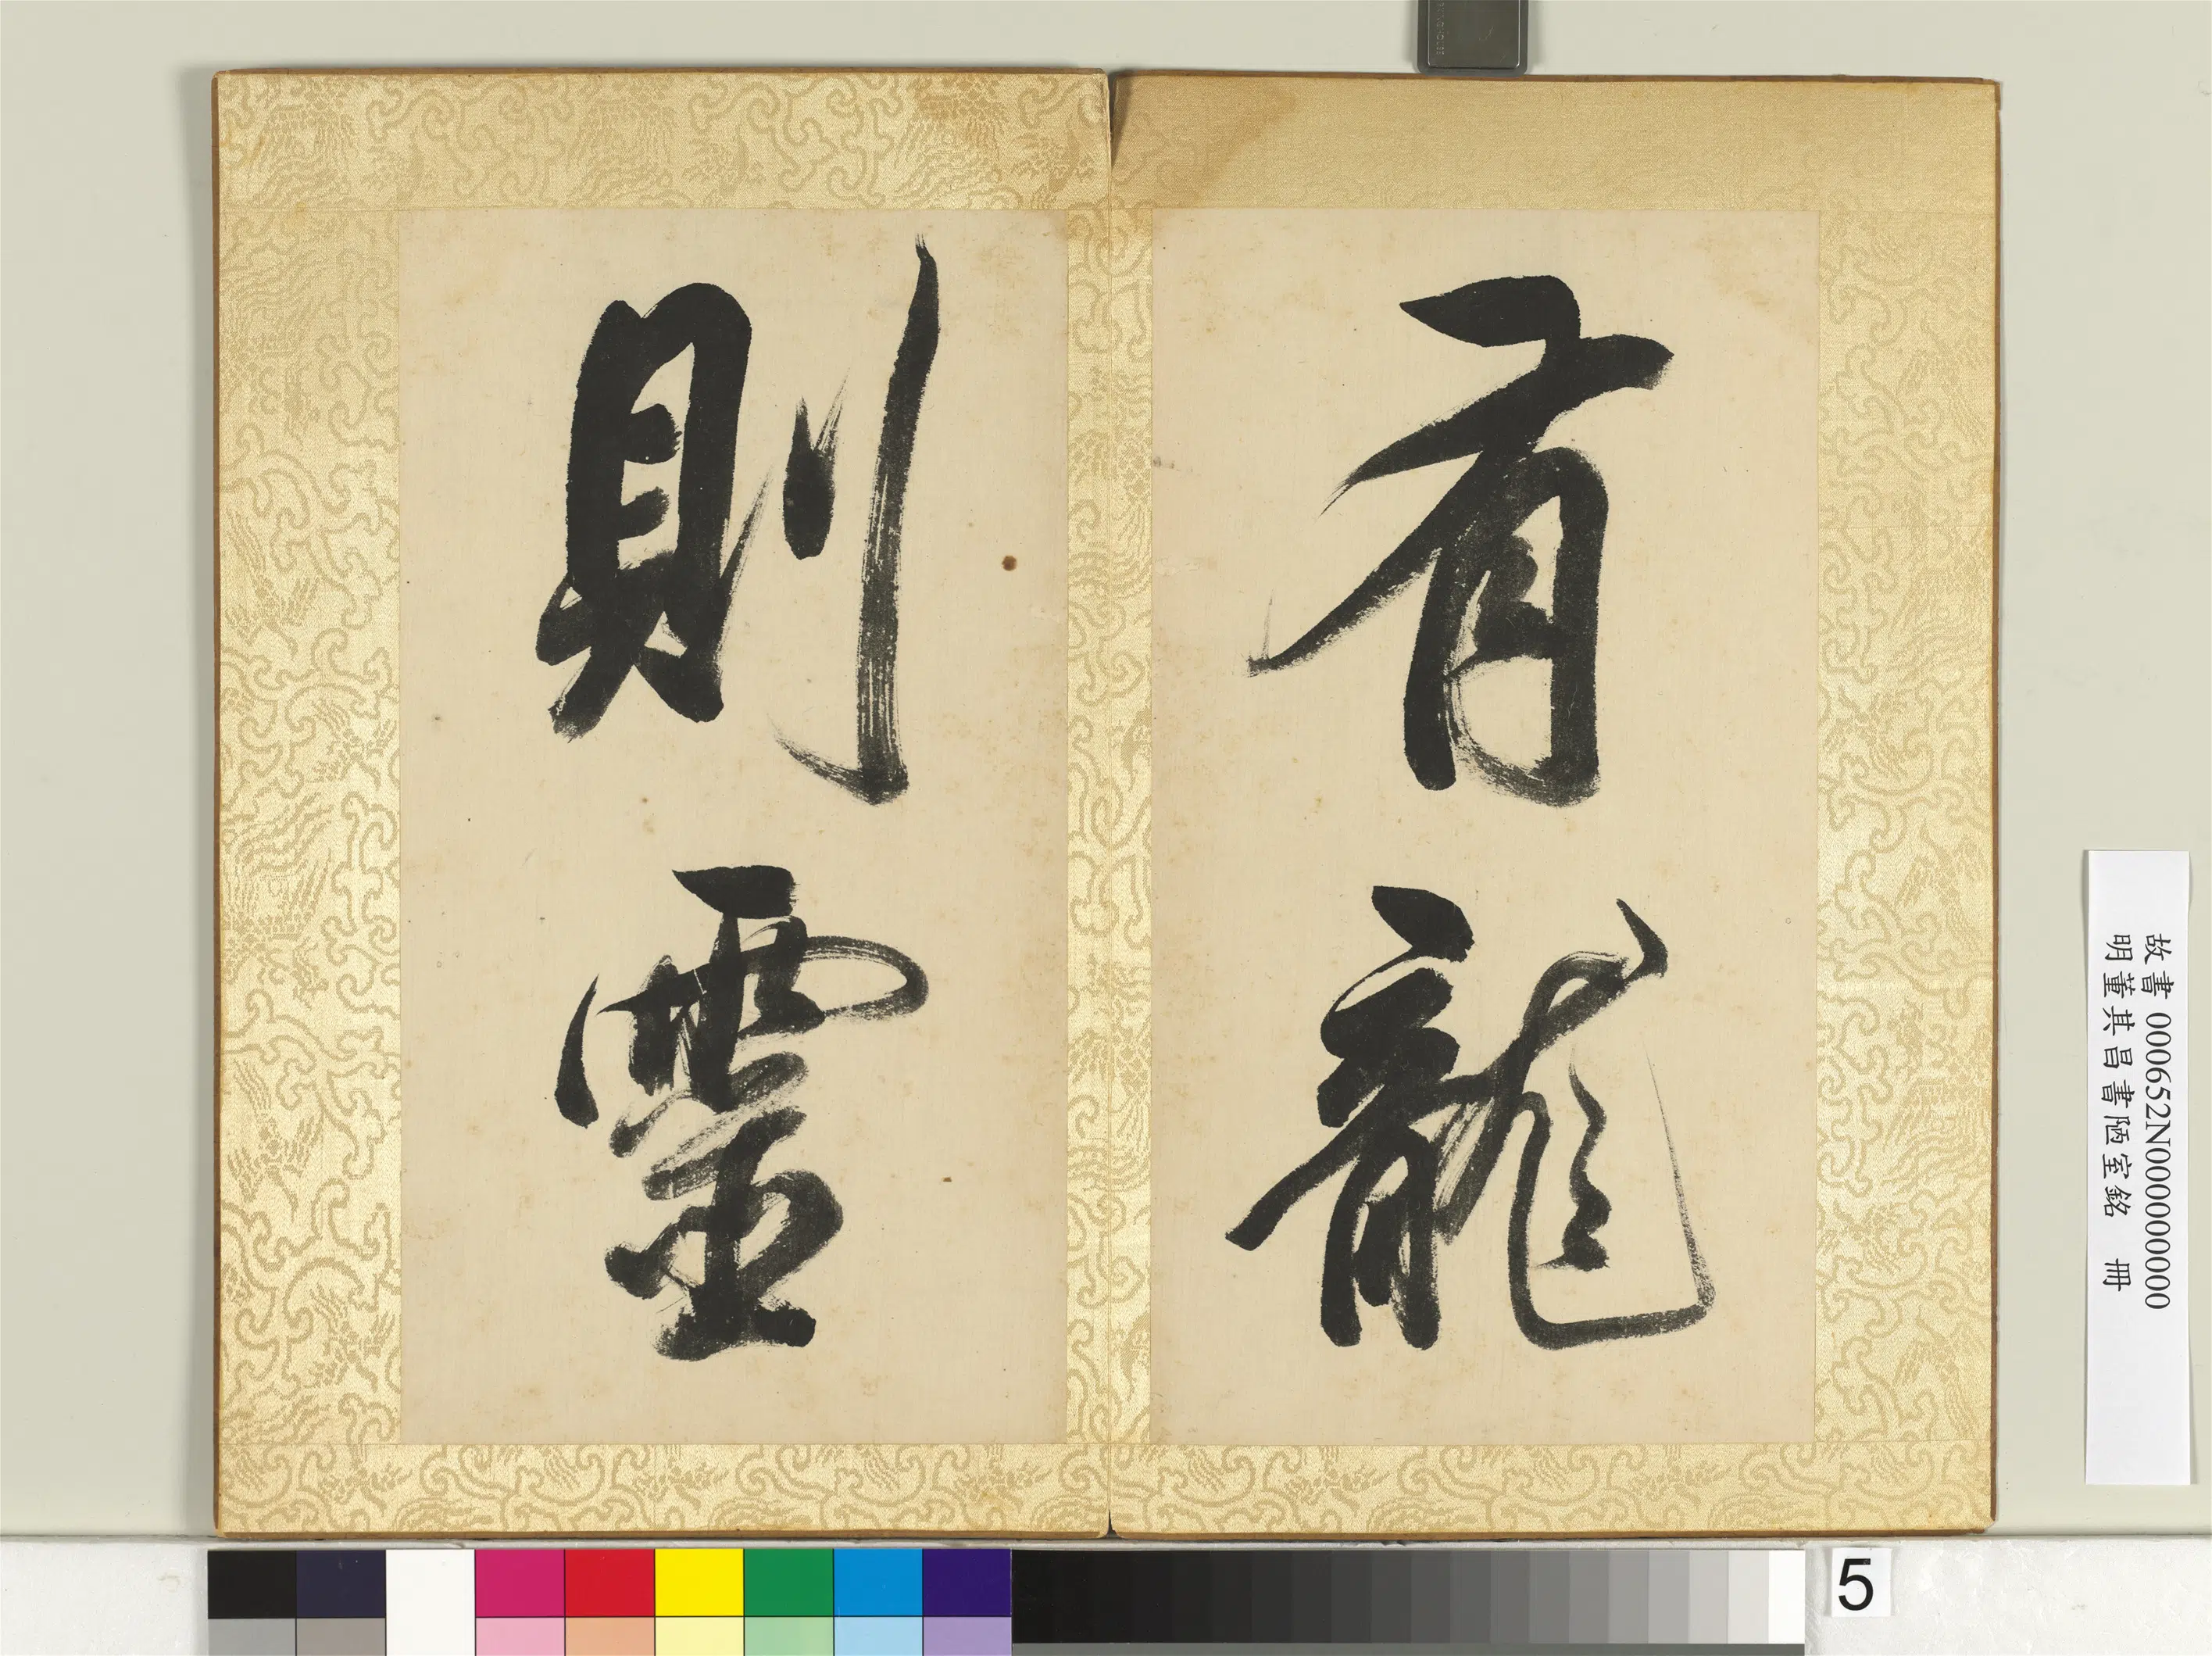 有龍
則靈
故書 000652N000000000
明董其昌書陋室銘 冊
5